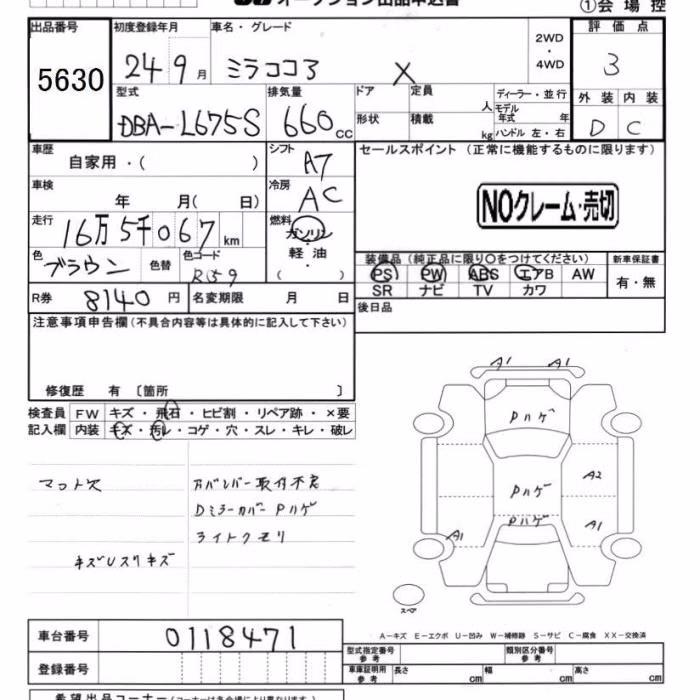 オークション出品申込書
①会場控
出品番号
5630
初度登録年月
24 9月
車名・グレード
ミラココア X
2WD
・
4WD
評価点
3
型式
DBA-L675S
排気量
660cc
ドア
定員
人
ディーラー・並行
モデル年式 年
形状
積載
kg
ハンドル 左・右
外装 内装
D C
車歴
自家用・( )
シフト
A7
セールスポイント (正常に機能するものに限ります)
NOクレーム・売切
車検
年 月( 日)
冷房
AC
走行
16万5千067km
燃料
ガソリン
軽油
( )
色
ブラウン
色替
色コード
R59
装備品(純正品に限り〇をつけてください)
新車保証書
PS PW ABS エアB AW
SR ナビ TV カワ
有・無
R券
8140円
名変期限 月 日
後日品
注意事項申告欄(不具合内容等は具体的に記入して下さい)
修復歴 有 〔箇所 〕
検査員 FW キズ・飛石・ヒビ割・リペア跡・×要
記入欄 内装 キズ・汚レ・コゲ・穴・スレ・キレ・破レ
マット欠
Dミラーカバー Pハゲ
ライトクモリ
キズUスリキズ
A1 A1
Pハゲ
A2
Pハゲ
Pハゲ
A1 A1
スペア
A-キズ E-エクボ U-凹み W-補修跡 S-サビ C-腐食 XX-交換済
車台番号
0118471
型式指定番号
参考
類別区分番号
参考
登録番号
車庫証明用
参考
長さ cm
幅 cm
高さ cm
希望出品コーナー(コーナーは各会場により異なります)